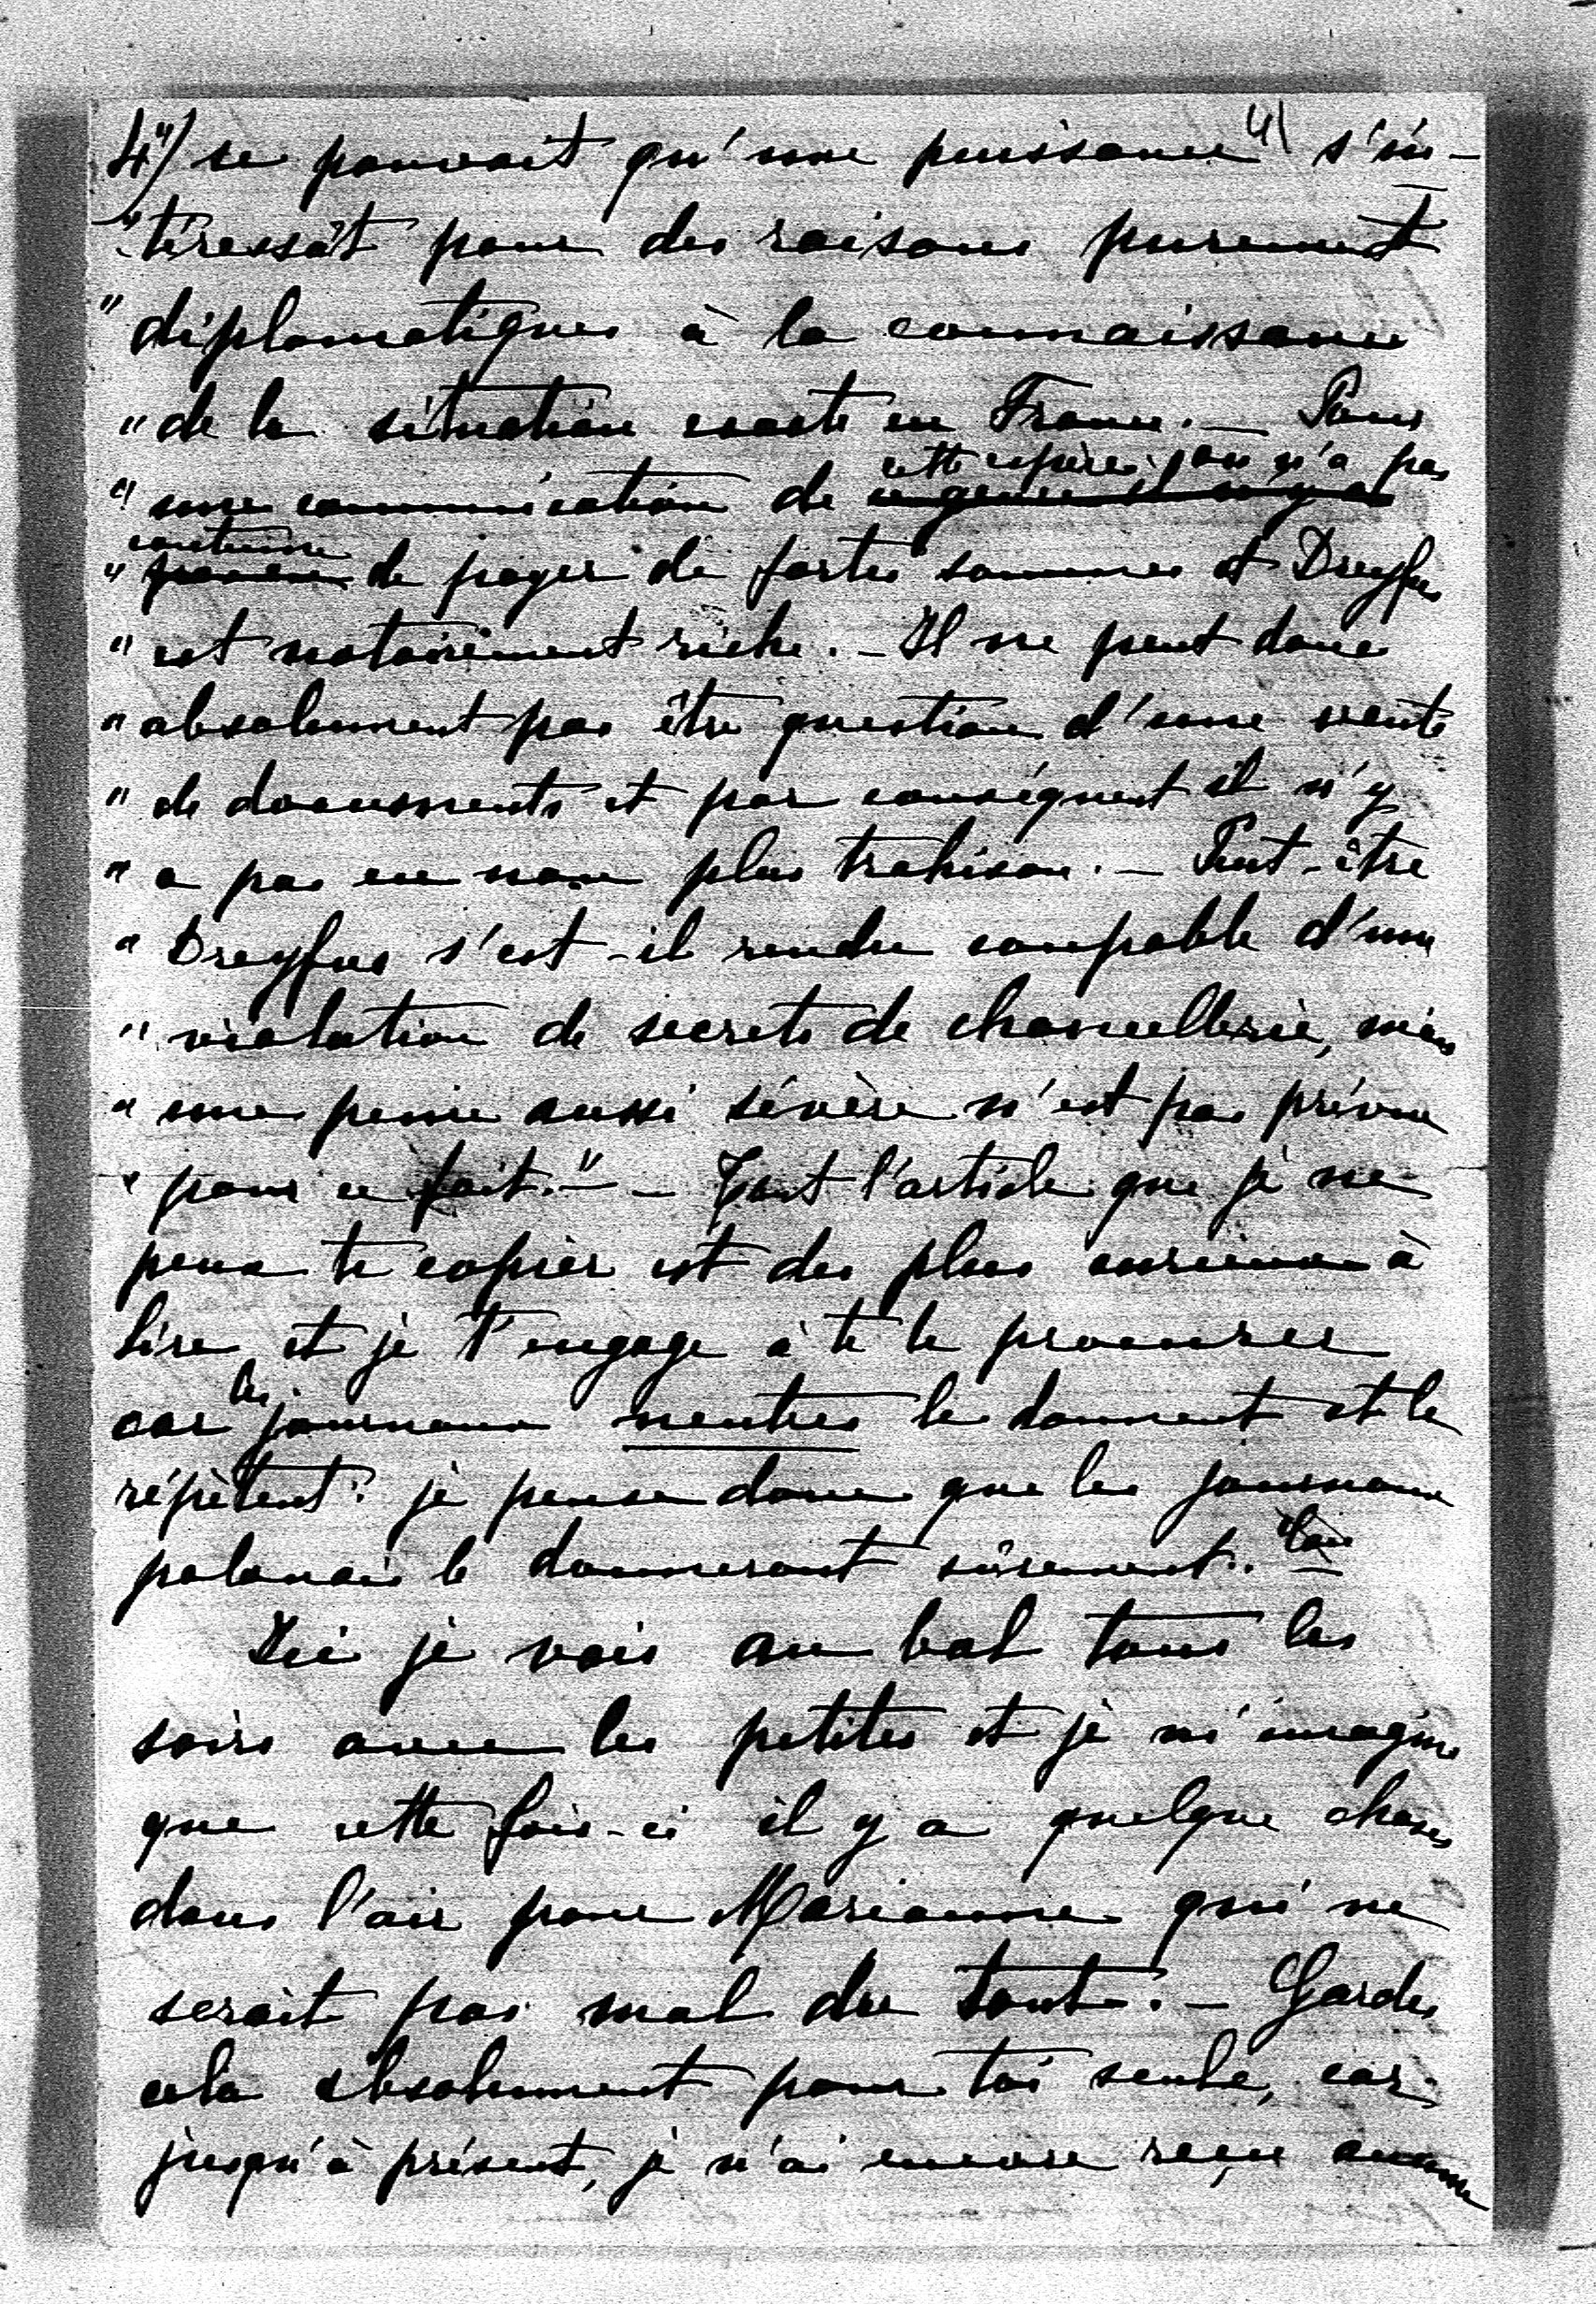 4/ "se pouvait qu'une puissance s'in-
"téressât pour des raisons purement
"diplomatiques à la connaissance
"de la situation exacte en France. — Pour
cette espèce, on n'a pas
"une communication de ce genre il n'y a
coutume
"de payer de fortes sommes et Dreyfus
"est notoirement riche. — Il ne peut donc
"absolument pas être question d'une vente
"de documents et par conséquent il n'y
"a pas eu non plus trahison. — Peut-être
"Dreyfus s'est-il rendu coupable d'une
"violation de secrets de chancellerie, mais
"une peine aussi sévère n'est pas prévue
"pour ce fait." — Tout l'article que je ne
peux te copier est des plus curieux à
lire et je t'engage à te le procurer
les
car journaux neutres le donnent et le
répètent: je pense donc que les journaux
polonais le donneront sûrement.
Ici je vais au bal tous les
soirs avec les petites et je m'imagine
que cette fois-ci il y a quelque chose
dans l'air pour Marianne qui ne
serait pas mal du tout. — Garde
cela absolument pour toi seule, car
jusqu'à présent, je n'ai encore reçu aucune